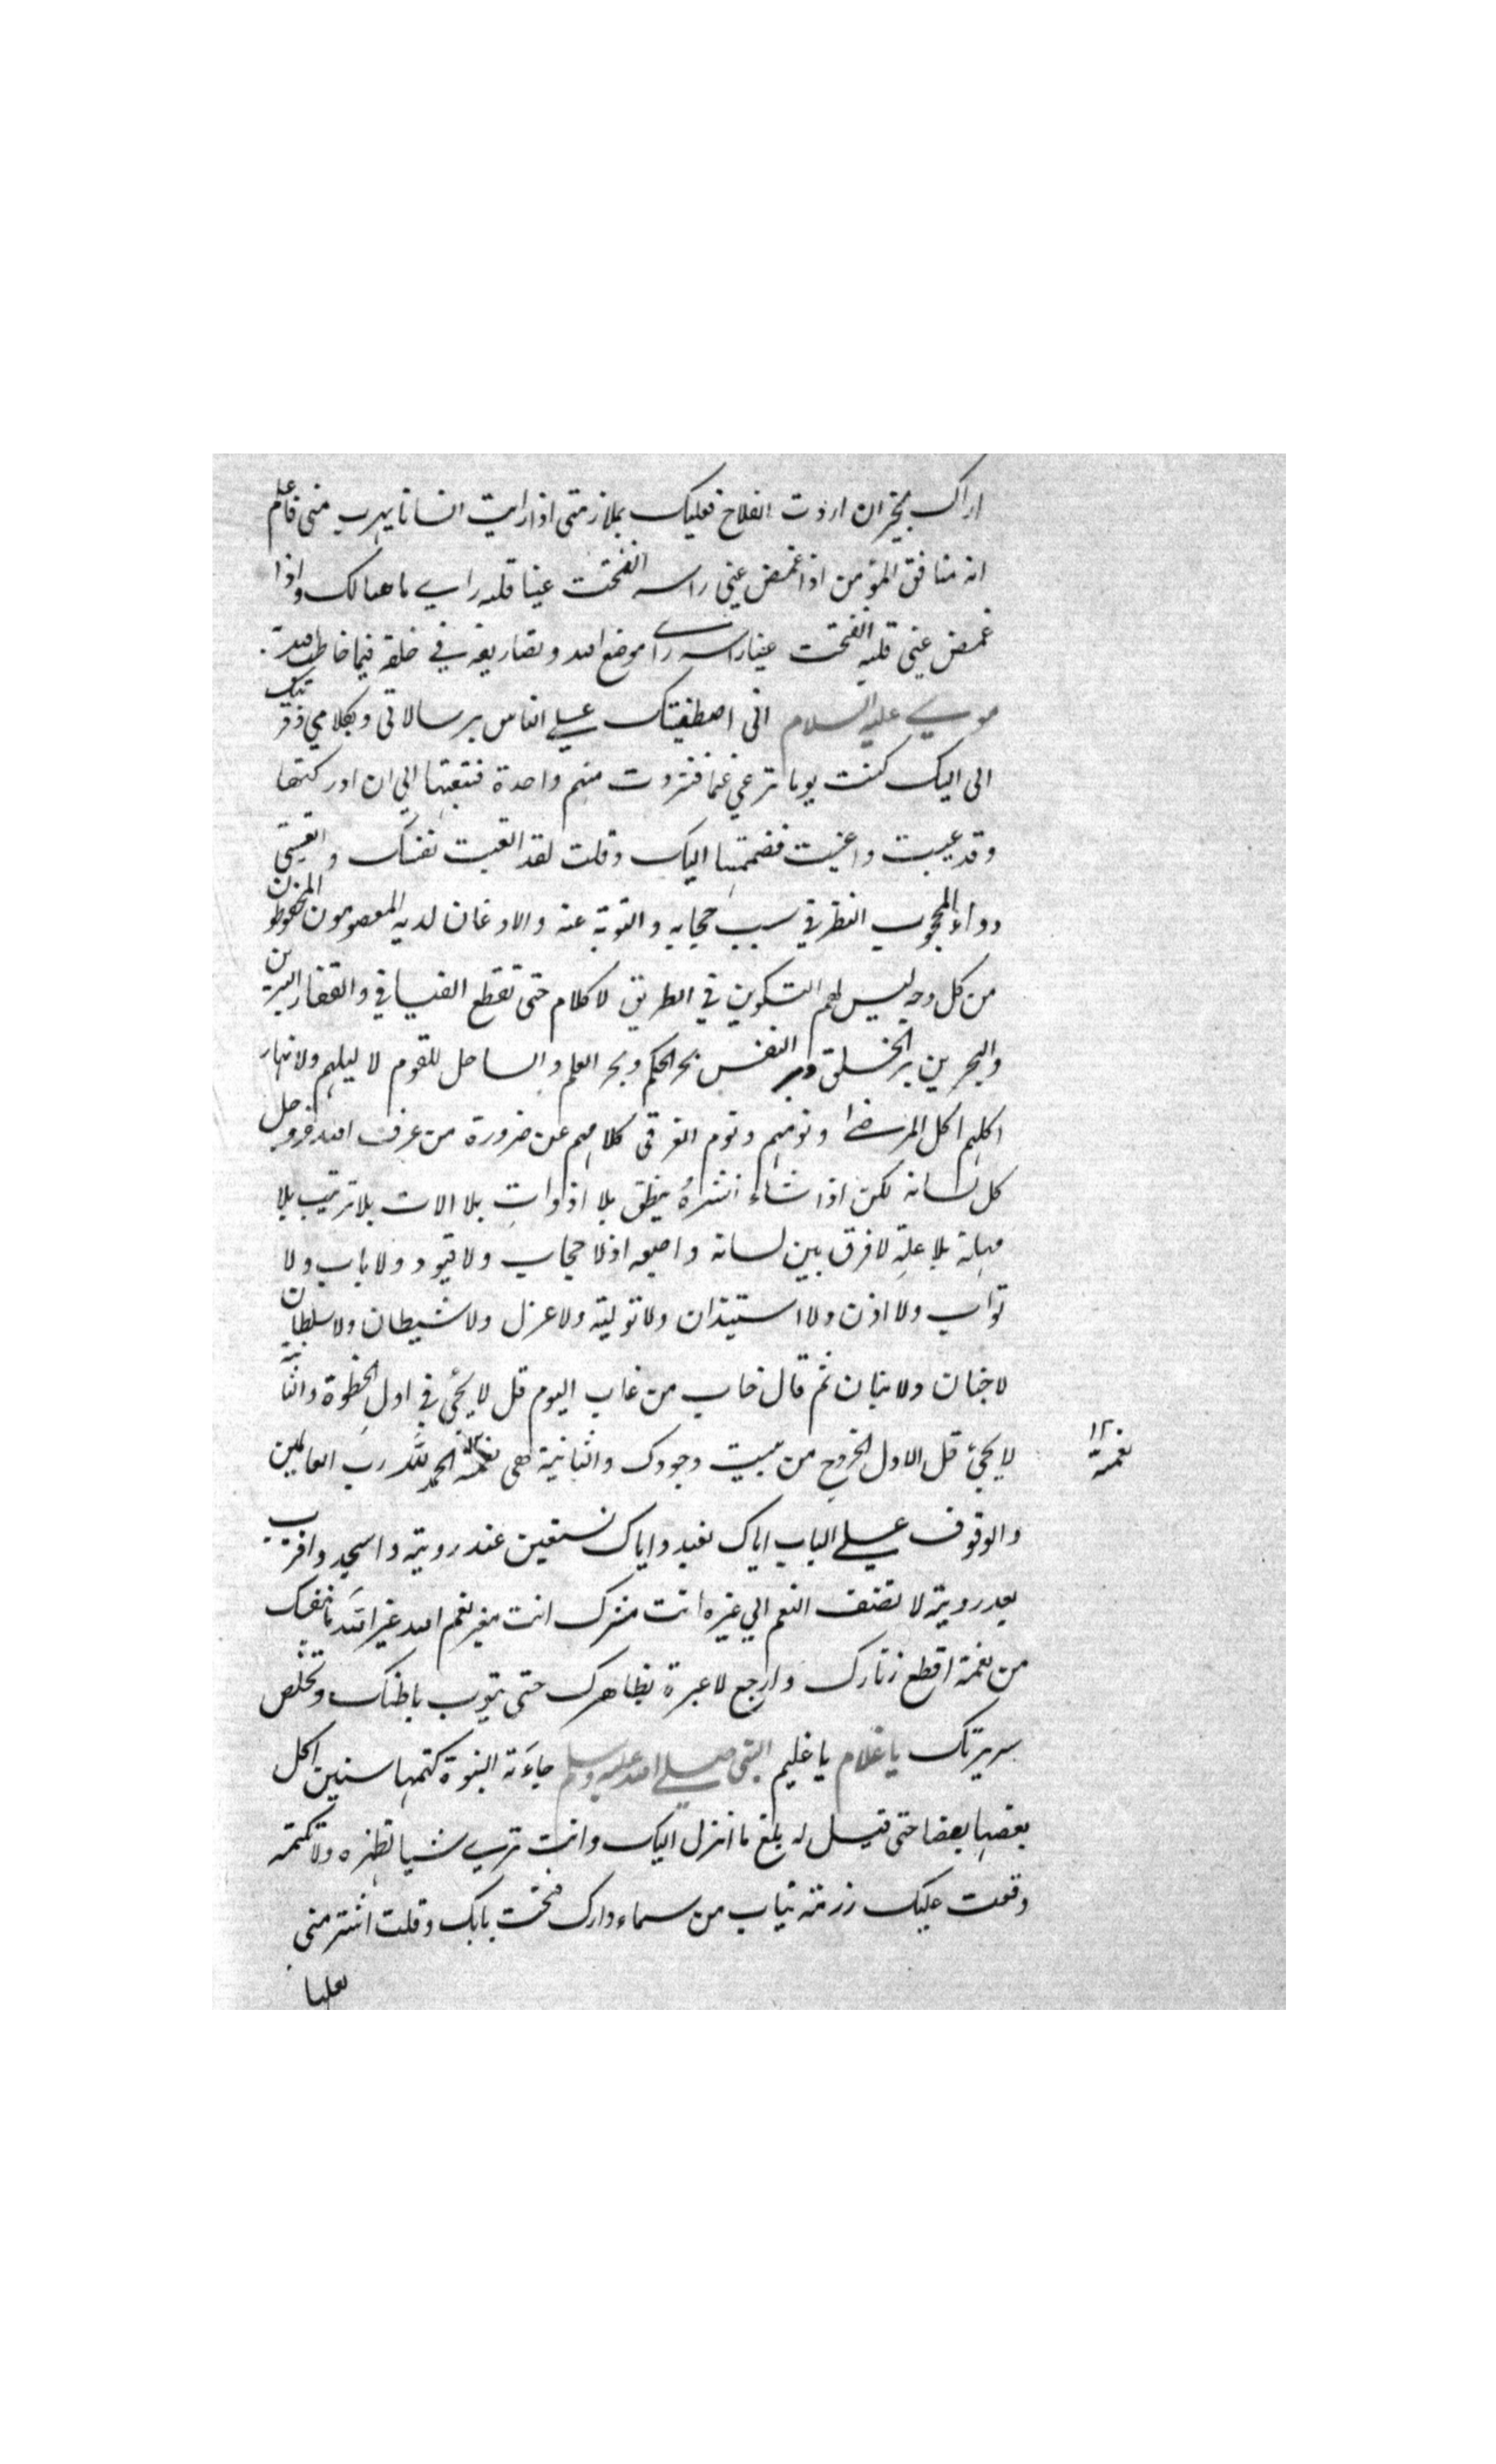 اراك بخير ان اردت الفلاح فعليك بملازمتى اذا رايت انسانا يهرب منى فاعلم
انه منافق المؤمن اذا غمض عينى راسه انفتحت عينا قلبه راى ما هنالك واذا
غمض عينى قلبه انفتحت عينا راسه راى موضع الله وتصاريفه في خلقه فيما خاطب الله
موسى عليه السلام انى اصطفيتك على الناس برسالاتى وبكلامي وقربتك
الى اليك كنت يوما ترعي غنما فنزوت منهم واحدة فتتبعتها الي ان ادركتها
وقد عييت واعيت فضممتها اليك وقلت لقد اتعبت نفسك واتعبتى
دواء المحجوب النظر في سبب حجابه والتوبة عنه والاذعان لديه المعصومون المحفوظون
من كل وجه ليس لهم السكون في الطريق لا كلام حتى تقطع الفيافي والقفار البرين
والبحرين بر الخلق وبر النفس بحر الحكم وبحر العلم والساحل للقوم لا ليلهم ولا نهار
اكلهم اكل المرضى ونومهم ونوم الغرقى كلامهم عن ضرورة من عرف الله عزوجل
كل لسانه لكن اذا شاء انشره ينطق بلا اذوات بلا الات بلا ترتيب بلا
مهلة بلا علة لا فرق بين لسانه واصبعه اذ لا حجاب ولا قيود ولا باب ولا
تواب ولا اذن ولا استيذان ولا تولية ولا عزل ولا شيطان ولا سلطان
لا جنان ولا بنان ثم قال خاب من غاب اليوم قل لا يجئ في اول الخطوة والثانية
لا يجئ قل الاول الخروج من بيت وجودك والثانية هى نغمة الحمد لله رب العالمين
نغمة ١٢
والوقوف على الباب اياك نعبد واياك نستعين عند رويته واسجد واقترب
بعد رويته لا تضف النعم الي غيره انت مشرك انت مغير نعم الله غير الله ما بنفسك
من نعمة اقطع زنارك وارجع لا عبرة بظاهرك حتى يتوب باطنك وتخلص
سريرتك يا غلام يا غليم النبى صلى الله عليه وسلم جاءته النبوة كتمها سنين اكل
بعضها بعضا حتى قيل له بلغ ما انزل اليك وانت ترى شيا تظهره ولا تكتمه
وقعت عليك رزمة ثياب من سماء دارك فتحت بابك وقلت اشتر منى